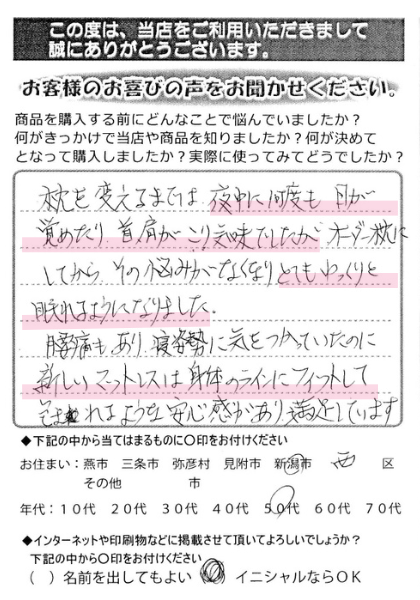 この度は、当店をご利用いただきまして
誠にありがとうございます。
お客様のお喜びの声をお聞かせください。
商品を購入する前にどんなことで悩んでいましたか?
何がきっかけで当店や商品を知りましたか?何が決めて
となって購入しましたか?実際に使ってみてどうでしたか?
枕を変えるまでは、夜中に何度も 目が
覚めたり、首、肩が こり気味でしたが オーダー枕に
してから、その悩みがなくなり とてもゆっくりと
眠れるようになりました。
腰痛もあり、寝姿勢に気をつかっていたのに
新しいマットレスは身体のラインにフィットして
れるような安心感があり満足しています
◆下記の中から当てはまるものに〇印をお付けください
お住まい：燕市 三条市 弥彦村 見附市 新潟市 西 区
その他 市
年代：10代 20代 30代 40代 50代 60代 70代
◆インターネットや印刷物などに掲載させて頂いてよろしいでしょうか?
下記の中から〇印をお付けください
( ) 名前を出してもよい イニシャルならOK